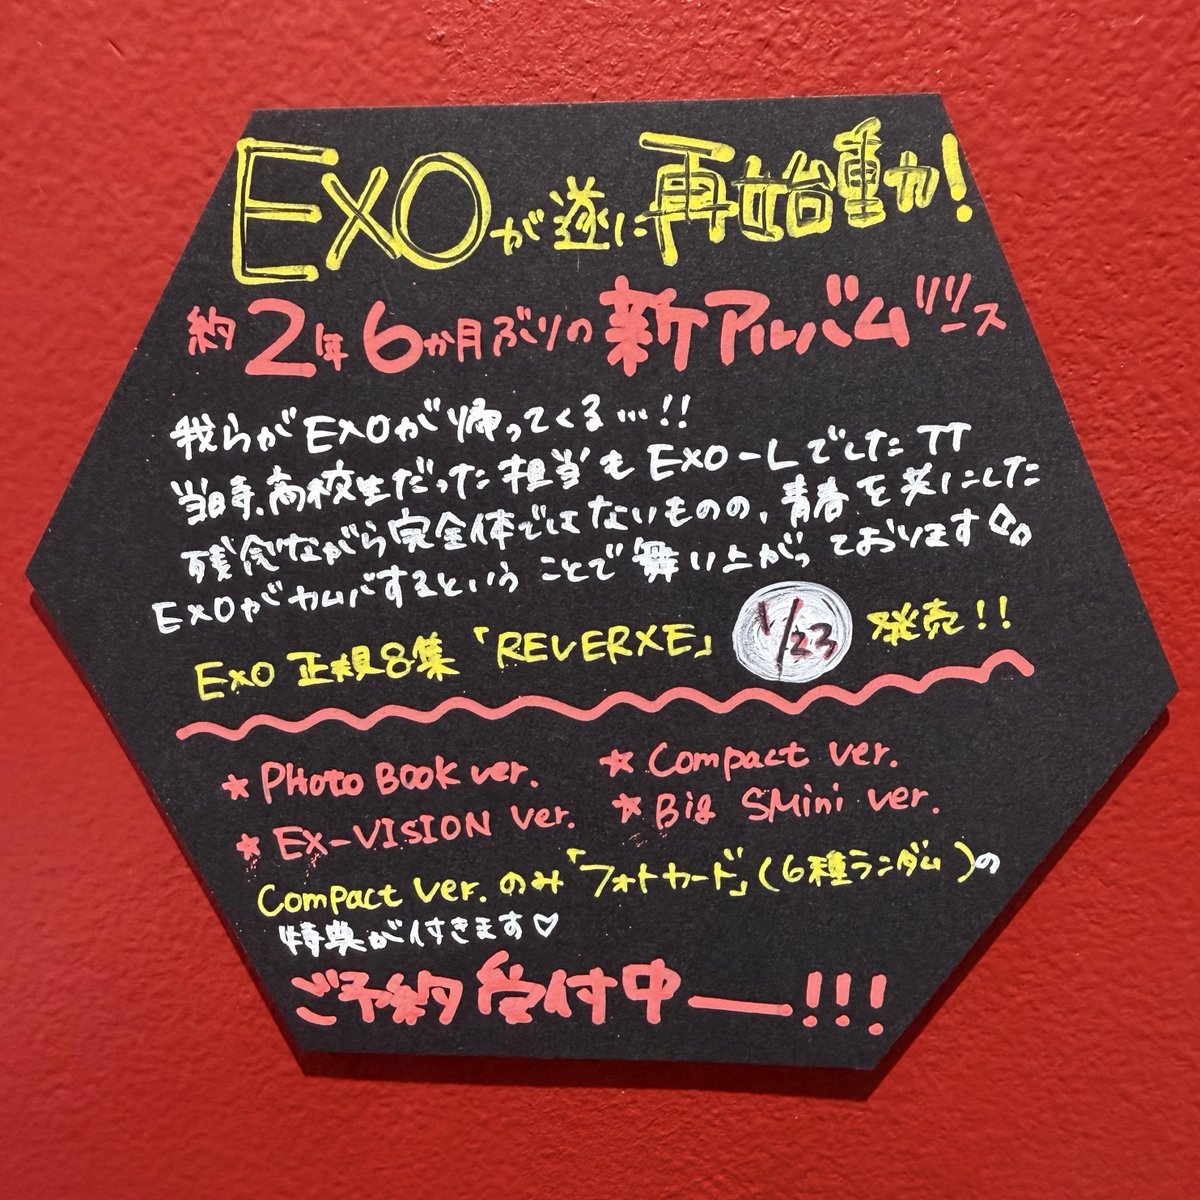 EXOが遂に再始動!
約2年6か月ぶりの新アルバムリリース
我らがEXOが帰ってくる…!!
当時、高校生だった担当もEXO-LでしたTT
残念ながら完全体ではないものの、青春を共にした
EXOがカムバするということで舞い上がっております
EXO 正規8集「REVERXE」 1/23 発売!!
★ PHoto BOOK ver. ★ Compact ver.
★ EX-VISION ver. ★ Big SMini ver.
Compact ver. のみ「フォトカード」(6種ランダム)の
特典が付きます♡
ご予約受付中ー!!!